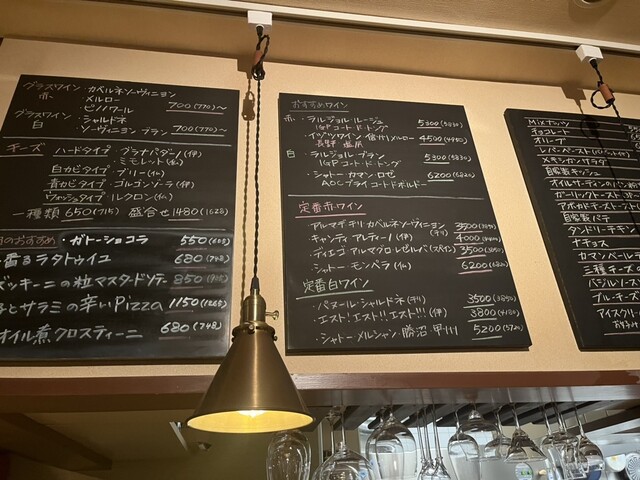 グラスワイン・カベルネソーヴィニヨン
赤 ・メルロー
・ピノノワール 700(770)〜
グラスワイン・シャルドネ
白 ・ソーヴィニヨン ブラン 700(770)〜
チーズ
ハードタイプ・グラナパダーノ(伊)
・ミモレット(仏)
白カビタイプ・ブリー(仏)
青カビタイプ・ゴルゴンゾーラ(伊)
ウォッシュタイプ・ルクロン(仏)
一種類 650(715) 盛合せ1480(1628)
のおすすめ・ガトーショコラ 550(605)
香るラタトゥイユ 680(748)
ッキーニの粒マスタードソテー 850(935)
とサラミの辛いPizza 1150(1265)
オイル煮クロスティーニ 680(748)
おすすめワイン
赤・ラルジョル・ルージュ 5300(5830)
IGPコート・ド・トング
・イヅツワイン 信州メルロー 4500(4950)
長野 塩尻
白・ラルジョル・ブラン 5300(5830)
IGPコート・ド・トング
・シャトー・カマン・ロゼ 6200(6820)
AOCプライコートドボルドー
定番赤ワイン
・アルマデチリ カベルネソーヴィニヨン(チリ) 3500(3850)
・キャンティ アティーノ(伊) 4000
・ディエゴ・アルマグロ・レゼルバ(スペイン) 3500(3850)
・シャトー・モンペラ(仏) 6200(6820)
定番白ワイン
・パヌール シャルドネ(チリ) 3500(3850)
・エスト!エスト!!エスト!!!(伊) 3800(4180)
・シャトーメルシャン・勝沼 甲州 5200(5720)
Mixナッツ
チョコレート
オリーブ
レバペースト(バゲット付)
メキシカンサラダ
自家製キッシュ
オイルサーディンの
ガーリックトースト
アボカドチーズ
自家製パテ
タンドリーチキン
ナチョス
カマンベール
三種チーズ
バジルソース
ブルーチーズ
アイスクリーム